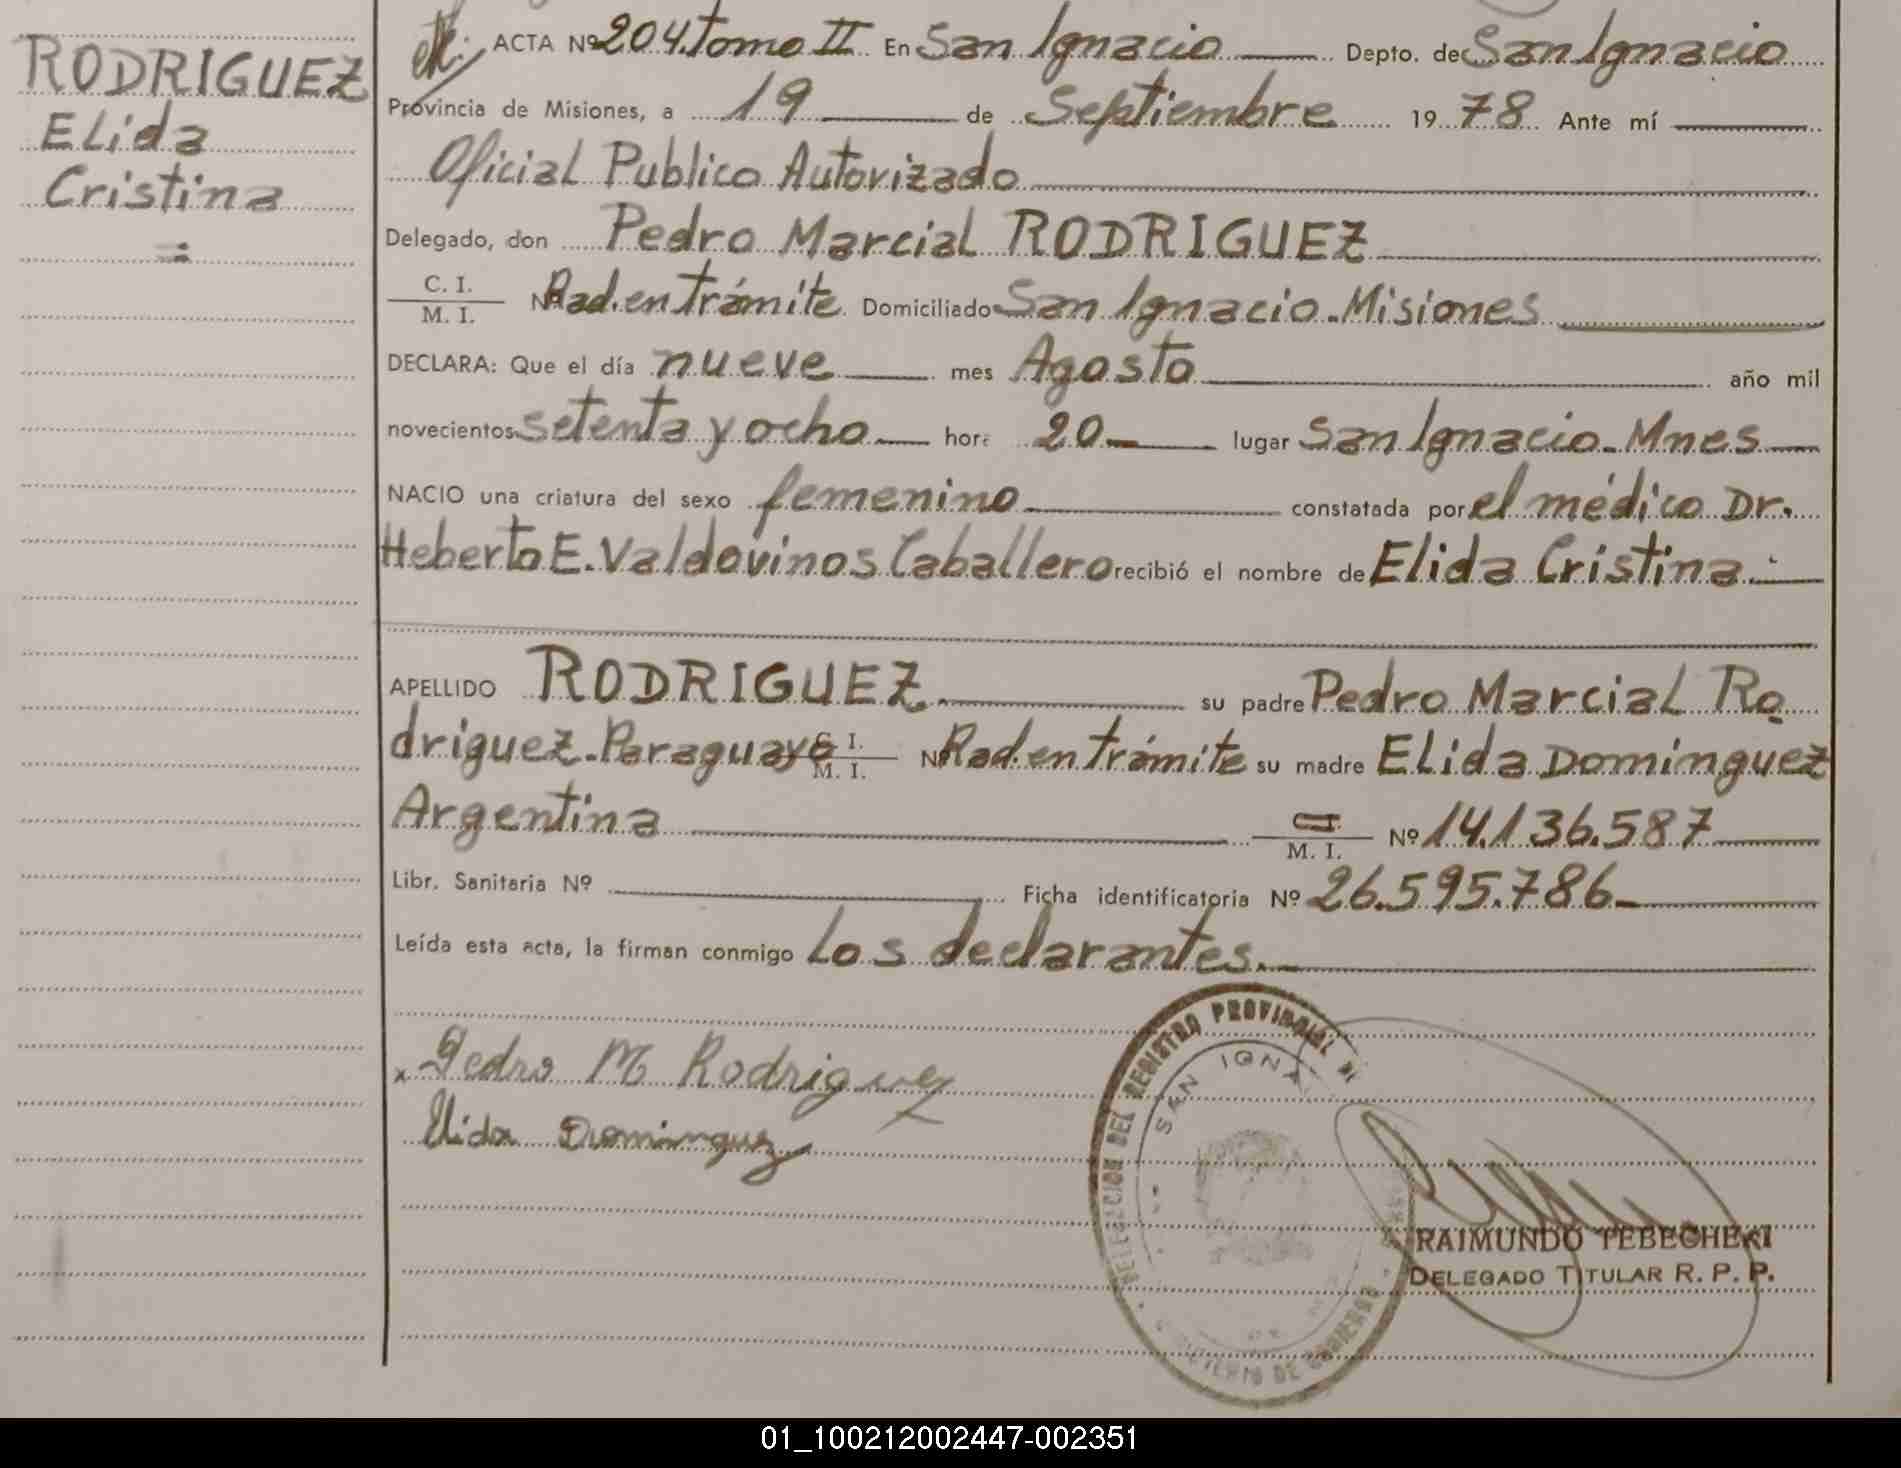 RODRIGUEZ
Elida
Cristina
ACTA Nº 204 Tomo II En San Ignacio Depto. de San Ignacio
Provincia de Misiones, a 19 de Septiembre 1978 Ante mí
Oficial Publico Autorizado
Delegado, don Pedro Marcial RODRIGUEZ
C. I.
M. I. Nº Rad. en Trámite Domiciliado San Ignacio - Misiones
DECLARA: Que el día nueve mes Agosto año mil
novecientos setenta y ocho hora 20 lugar San Ignacio - Mnes
NACIO una criatura del sexo femenino constatada por el médico Dr.
Heberto E. Valdovinos Caballero recibió el nombre de Elida Cristina
APELLIDO RODRIGUEZ su padre Pedro Marcial Ro
driguez - Paraguayo C. I. M. I. Nº Rad. en Trámite su madre Elida Dominguez
Argentina C. I. M. I. Nº 14.136.587
Libr. Sanitaria Nº Ficha identificatoria Nº 26.595.786
Leída esta acta, la firman conmigo los declarantes.
x Pedro M Rodriguez
Elida Dominguez
DELEGACION DEL REGISTRO PROVINCIAL
SAN IGNA
DE GOBIERNO
RAIMUNDO TEBECHERI
DELEGADO TITULAR R. P. P.
01_100212002447-002351